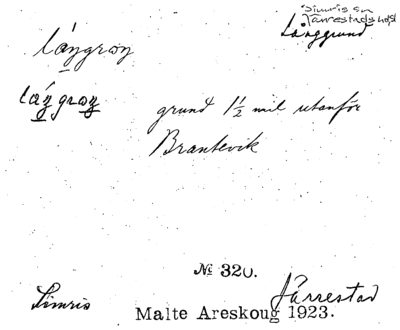 Simris sn
Järrestads hd
Långgrund
låŋgrøŋ
låŋ grøŋ grund 1½ mil utanför
Brantevik
№ 320.
Simris Järrestad
Malte Areskoug 1923.